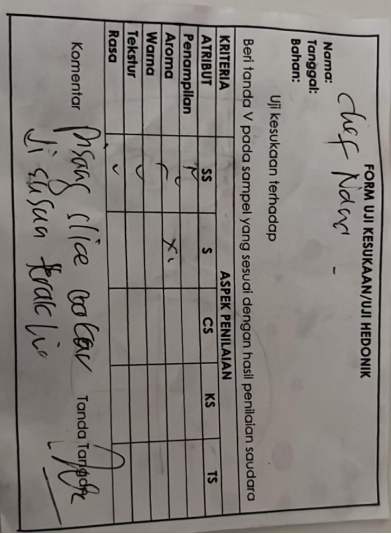 FORM UJI KESUKAAN/UJI HEDONIK
Nama: Chef Ndaru -
Tanggal:
Bahan:
Uji kesukaan terhadap
Beri tanda V pada sampel yang sesuai dengan hasil penilaian saudara
KRITERIA ASPEK PENILAIAN
ATRIBUT SS S CS KS TS
Penampilan V
Aroma V X
Warna
Tekstur V
Rasa V
Komentar Pisang slice
di susun
Tanda Tangan